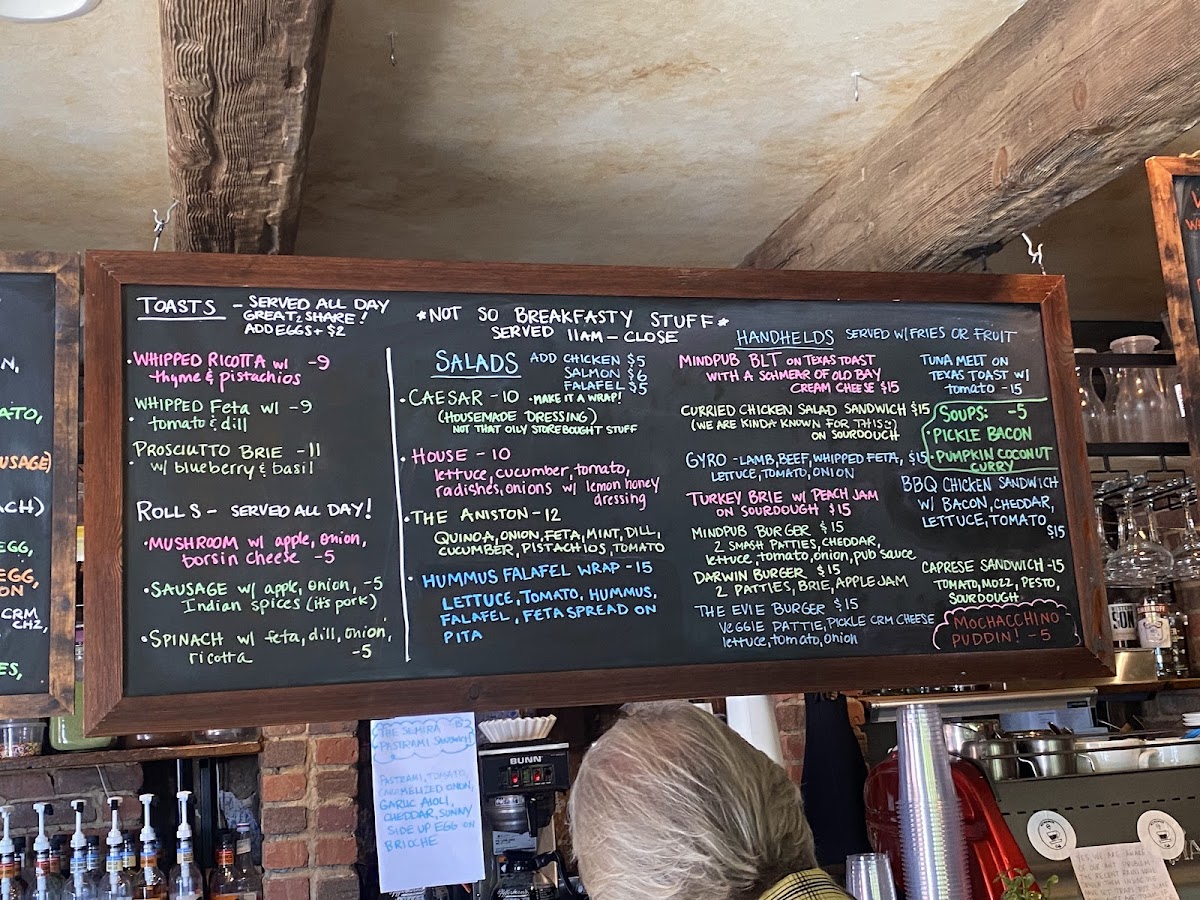 TOASTS - SERVED ALL DAY
GREAT 2 SHARE!
ADD EGGS + $2
• WHIPPED RICOTTA w/ -9
thyme & pistachios
WHIPPED Feta w/ -9
• tomato & dill
PROSCIUTTO BRIE -11
• w/ blueberry & basil
ROLLS - SERVED ALL DAY!
• MUSHROOM w/ apple, onion,
borsin cheese -5
• SAUSAGE w/ apple, onion, -5
Indian spices (it's pork)
• SPINACH w/ feta, dill, onion,
ricotta -5
*NOT SO BREAKFASTY STUFF*
SERVED 11AM - CLOSE
SALADS ADD CHICKEN $5
SALMON $6
FALAFEL $5
• CAESAR -10 • MAKE IT A WRAP!
(HOUSEMADE DRESSING)
NOT THAT OILY STOREBOUGHT STUFF
• HOUSE - 10
lettuce, cucumber, tomato,
radishes, onions w/ lemon honey
dressing
• THE ANISTON - 12
QUINOA, ONION, FETA, MINT, DILL,
CUCUMBER, PISTACHIOS, TOMATO
• HUMMUS FALAFEL WRAP - 15
LETTUCE, TOMATO, HUMMUS,
FALAFEL, FETA SPREAD ON
PITA
HANDHELDS SERVED W/ FRIES OR FRUIT
MINDPUB BLT ON TEXAS TOAST
WITH A SCHMEAR OF OLD BAY
CREAM CHEESE $15
CURRIED CHICKEN SALAD SANDWICH $15
(WE ARE KINDA KNOWN FOR THIS :)
ON SOURDOUCH
GYRO - LAMB, BEEF, WHIPPED FETA, $15
LETTUCE, TOMATO, ONION
TURKEY BRIE w/ PEACH JAM
ON SOURDOUGH $15
MINDPUB BURGER $15
2 SMASH PATTIES, CHEDDAR,
lettuce, tomato, onion, pub sauce
DARWIN BURGER $15
2 PATTIES, BRIE, APPLE JAM
THE EVIE BURGER $15
VEGGIE PATTIE, PICKLE CRM CHEESE
lettuce, tomato, onion
TUNA MELT ON
TEXAS TOAST w/
tomato - 15
SOUPS: -5
• PICKLE BACON
• PUMPKIN COCONUT
CURRY
BBQ CHICKEN SANDWICH
W/ BACON, CHEDDAR,
LETTUCE, TOMATO
$15
CAPRESE SANDWICH - 15
TOMATO, MOZZ, PESTO,
SOURDOUGH
MOCHACCHINO
PUDDIN! - 5
EGG,
EGG,
CRM
CHZ,
THE SEMIRA
PASTRAMI SANDWICH
PASTRAMI, TOMATO,
CARAMELIZED ONION,
GARLIC AIOLI,
CHEDDAR, SUNNY
SIDE UP EGG ON
BRIOCHE
BUNN